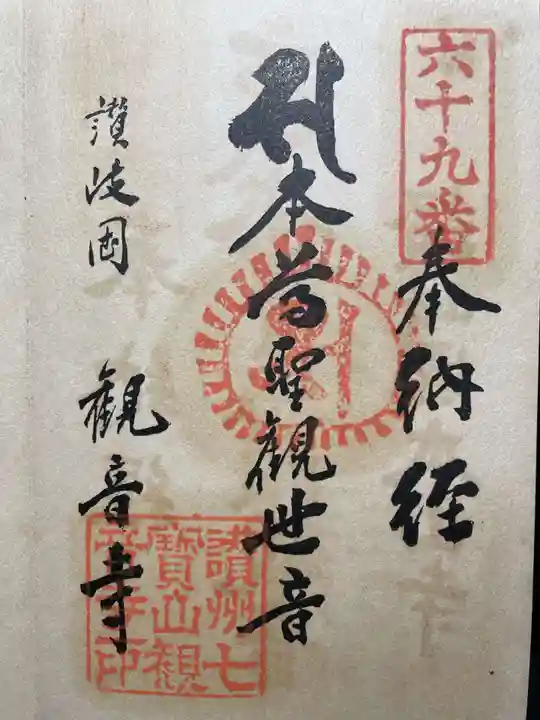 六十九番
奉納経
本尊聖観世音
讃岐国 観音寺
讃州七
寳山観
音寺印